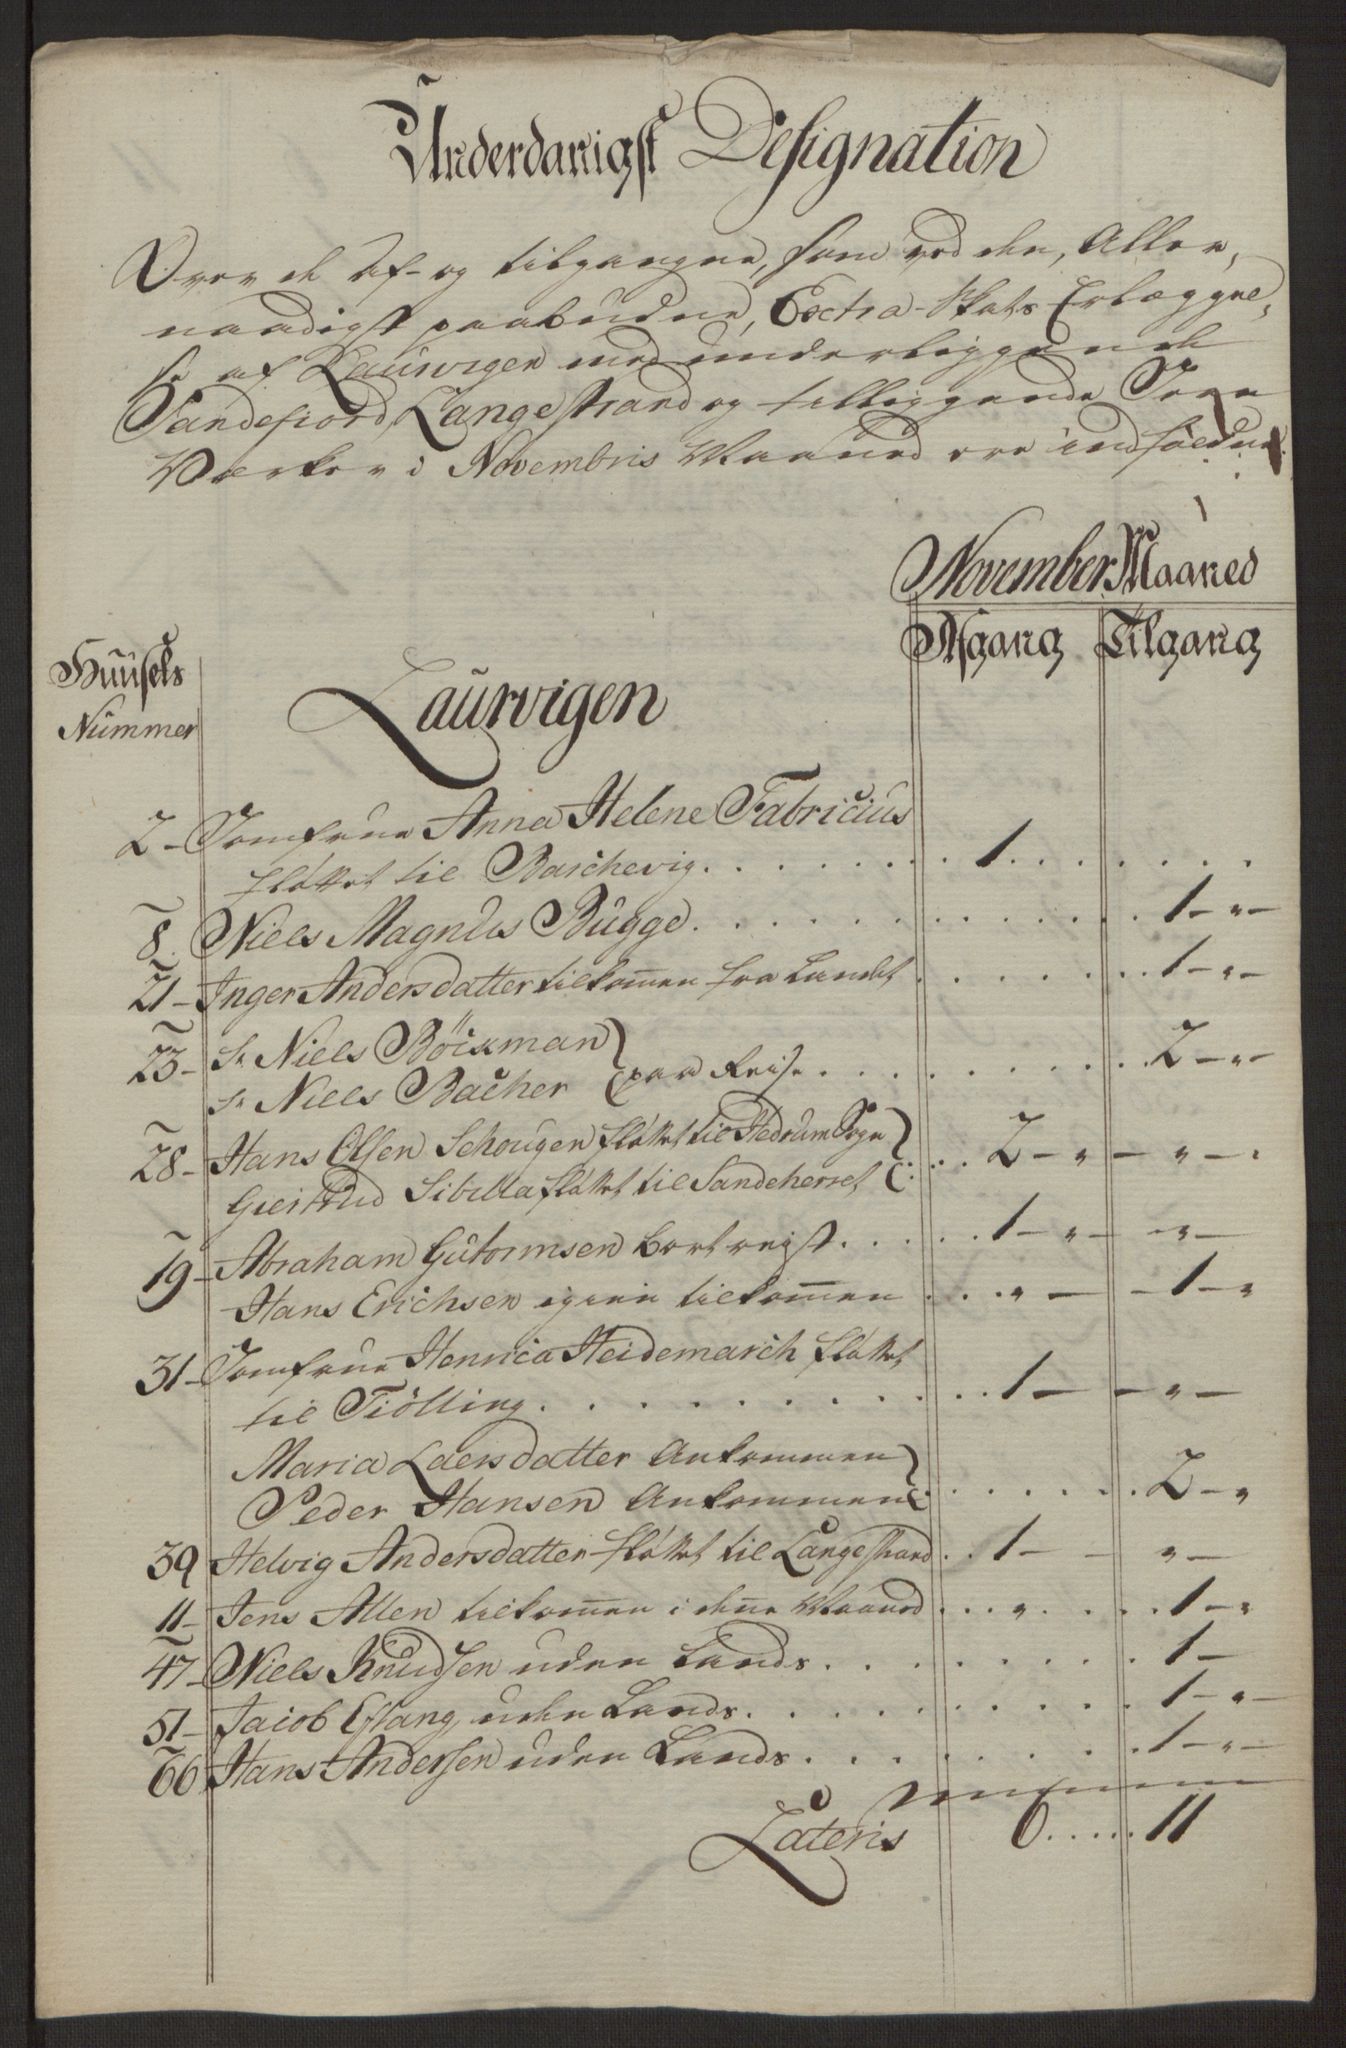 Underdanigst Designation
Over de Af- og tilgangne, som ved den, Aller,
naadigst paabudne, Extra-Skats Erlæggel,
se af Laurvigen med underliggende
Sandefiord, Langestrand og tilliggende Jern
Værker i Novembris Maaned ere indfaldne.
November Maaned
Afgang Tilgang
Huusets
Nummer
Laurvigen
2 - Jomfrue Anna Helene Fabricius
fløttet til Barchevig . . . . . . . 1 . . . . . . .
8. Niels Magnus Bugge . . . . . . . . . . . 1 - " -
21 - Inger Andersdatter tilkom̅en fra Landet . . . . . . . 1 - " -
23 - Sr Niels Böckman
Sr Niels Bacher } paa Reise . . . . . . . . . . 2 - " -
28 - Hans Olsen Schougen fløttet til Hedrum Sogn
Giertrud Sibilla fløttet til Sandeherret } . . . 2 - " - " - .
19 - Abraham Gutormsen bortreist . . . . . . 1 - " - " -
Hans Erichsen igien tilkom̅en . . . " - - 1 - "
31 - Jomfrue Henrica Heidemarch fløttet
til Tiölling . . . . . . . . . . . 1 - - " -
Maria Laersdatter Ankommen
Peder Hansen Ankommen } . . . . . . . 2 - "
39 Helvig Andersdatter fløttet til Langestrand . . 1 - - " -
11 - Jens Allen tilkom̅en i dene Maaned . . . " . . . . . 1 - "
47 - Niels Knudsen uden Lands . . . . . . . . . 1 -
51 - Jacob Eftang uden Lands . . . . . . . . . . . 1 - " -
66 Hans Andersen uden Lands . . . . . . . . . 1 - " -
Lateris 6 . . . . . 11